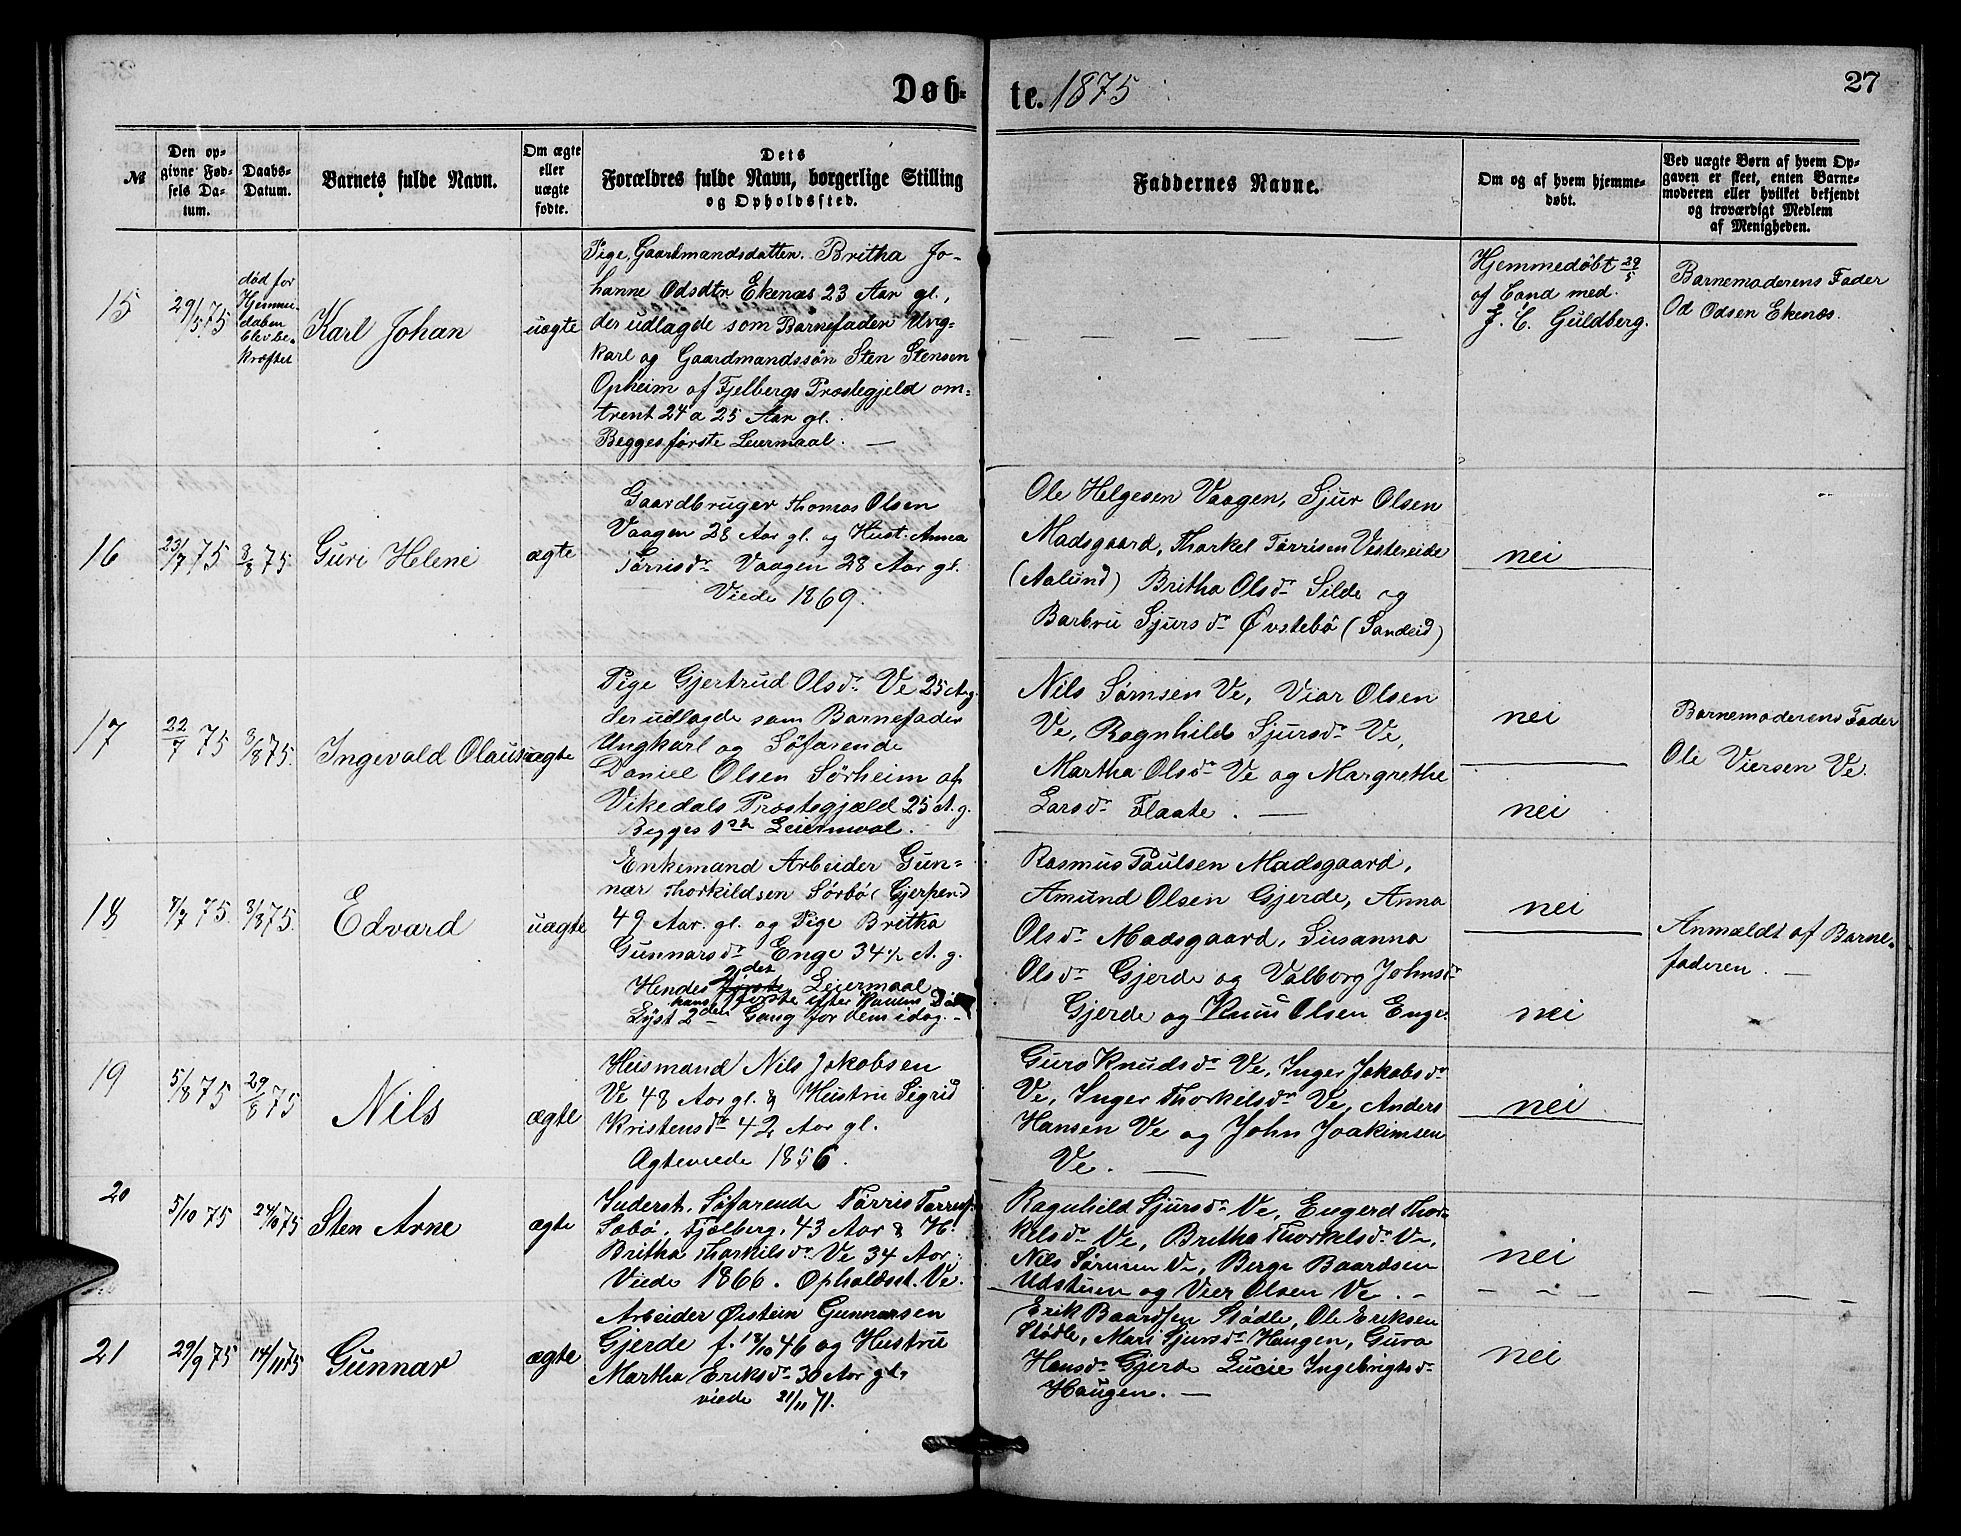 Døb-
te. 1875
27
№
Den op-
givne Fød-
sels Da-
tum.
Daabs-
Datum.
Barnets fulde Navn.
Om ægte
eller
uægte
fødte.
Dets
Forældres fulde Navn, borgerlige Stilling
og Opholdssted.
Faddernes Navne.
Om og af hvem hjemme-
døbt.
Ved uægte Børn af hvem Op-
gaven er skeet, enten Barne-
moderen eller hvilket bekjendt
og troværdigt Medlem
af Menigheden.
15
29/5 75
død før
Hjemme-
daben
blev be-
kræftet
Karl Johan
uægte
Pige, Gaardmandsdatter. Britha Jo-
hanne Odsdtr Ekenæs 23 Aar gl.,
der udlagde som Barnefader Ung-
karl og Gaardmandssøn Sten Stensen
Opheim af Fjelbergs Præstegjeld om-
trent 24 a 25 Aar gl.
Begges første Leiermaal. —
Hjemmedöbt 29/5
af Cand med.
J. C. Guldberg.
Barnemoderens Fader
Od Odsen Ekenæs.
16
23/7 75
8/8 75
Guri Helene
ægte
Gaardbruger Thomas Olsen
Vaagen 28 Aar gl. og Hust. Anna
Tørrisdr Vaagen 28 Aar gl.
Viede 1869.
Ole Helgesen Vaagen, Sjur Olsen
Madsgaard, Thorkel Tørrisen Vestereide
(Aalund) Britha Olsdr Silde og
Barbru Sjursdr Øvstebö (Sandeid)
nei
17
22/7 75
3/8 75.
Ingevald Olaus
uægte
Pige Gjertrud Olsdr Ve 25 A.g.
der udlagde som Barnefader
Ungkarl og Söfarende
Daniel Olsen Sørheim af
Vikedals Præstegjæld 25 A.g.
Begges 1ste Leiermaal.
Nils Sørnsen Ve, Viar Olsen
Ve, Ragnhild Sjursdr Ve,
Martha Olsdr Ve og Margrethe
Larsdr Flaate. —
nei
nei
Barnemoderens Fader
Ole Viersen Ve.
18
7/7 75.
3/8 75.
Edvard
uægte
Enkemand Arbeider Gun-
nar Thorkildsen Sörbö (Gjerpend
49 Aar. gl. og Pige Britha
Gunnarsdr Enge 34½ A. g.
Hendes 2det Leiermaal
hans første efter Konens
Lyst 2den Gang for dem idag. -
Rasmus Paulsen Madsgaard,
Amund Olsen Gjerde, Anna
Olsdr Madsgaard, Susanna
Olsdr Gjerde og Valborg Johnsdr
Gjerde og Knud Olsen Enge.
nei
nei
Anmældt af Barne-
faderen. —
19
5/8 75
29/8 75
Nils
ægte
Husmand Nils Jakobsen
Ve 48 Aar gl. & Hustru Sigrid
Kristensdr 42 Aar gl.
Ægteviede 1856.
Guro Knudsdr Ve, Inger Jakobsdr
Ve, Inger Thorkelsdr Ve, Anders
Hansen Ve og John Joakimsen
Ve. —
nei
20
5/10 75
24/10 75
Sten Arne
ægte
Inderst, Söfarende Tørris Tørris.
Søbø, Fjelberg, 43 Aar & H.
Britha Thorkilsdr Ve 34 Aar.
Viede 1866. Opholdsst. Ve.
Ragnhild Sjursdr Ve, Engerd Thor-
kelsdr Ve, Britha Thorkelsdr Ve,
Nils Sørnsen Ve, Berge Baardsen
Udstuen og Vier Olsen Ve. -
nei
21
29/9 75
14/11 75
Gunnar
ægte
Arbeider Øistein Gunnarsen
Gjerde f. 18/10 46 og Hustru
Martha Eriksdr 30 Aar gl.,
viede 21/11 71.
Erik Baardsen Stødle, Ole Eriksen
Stødle, Mari Sjursdr Haugen, Guro
Hansdr Gjerde Lucie Ingebrigtsdr
Haugen. —
nei